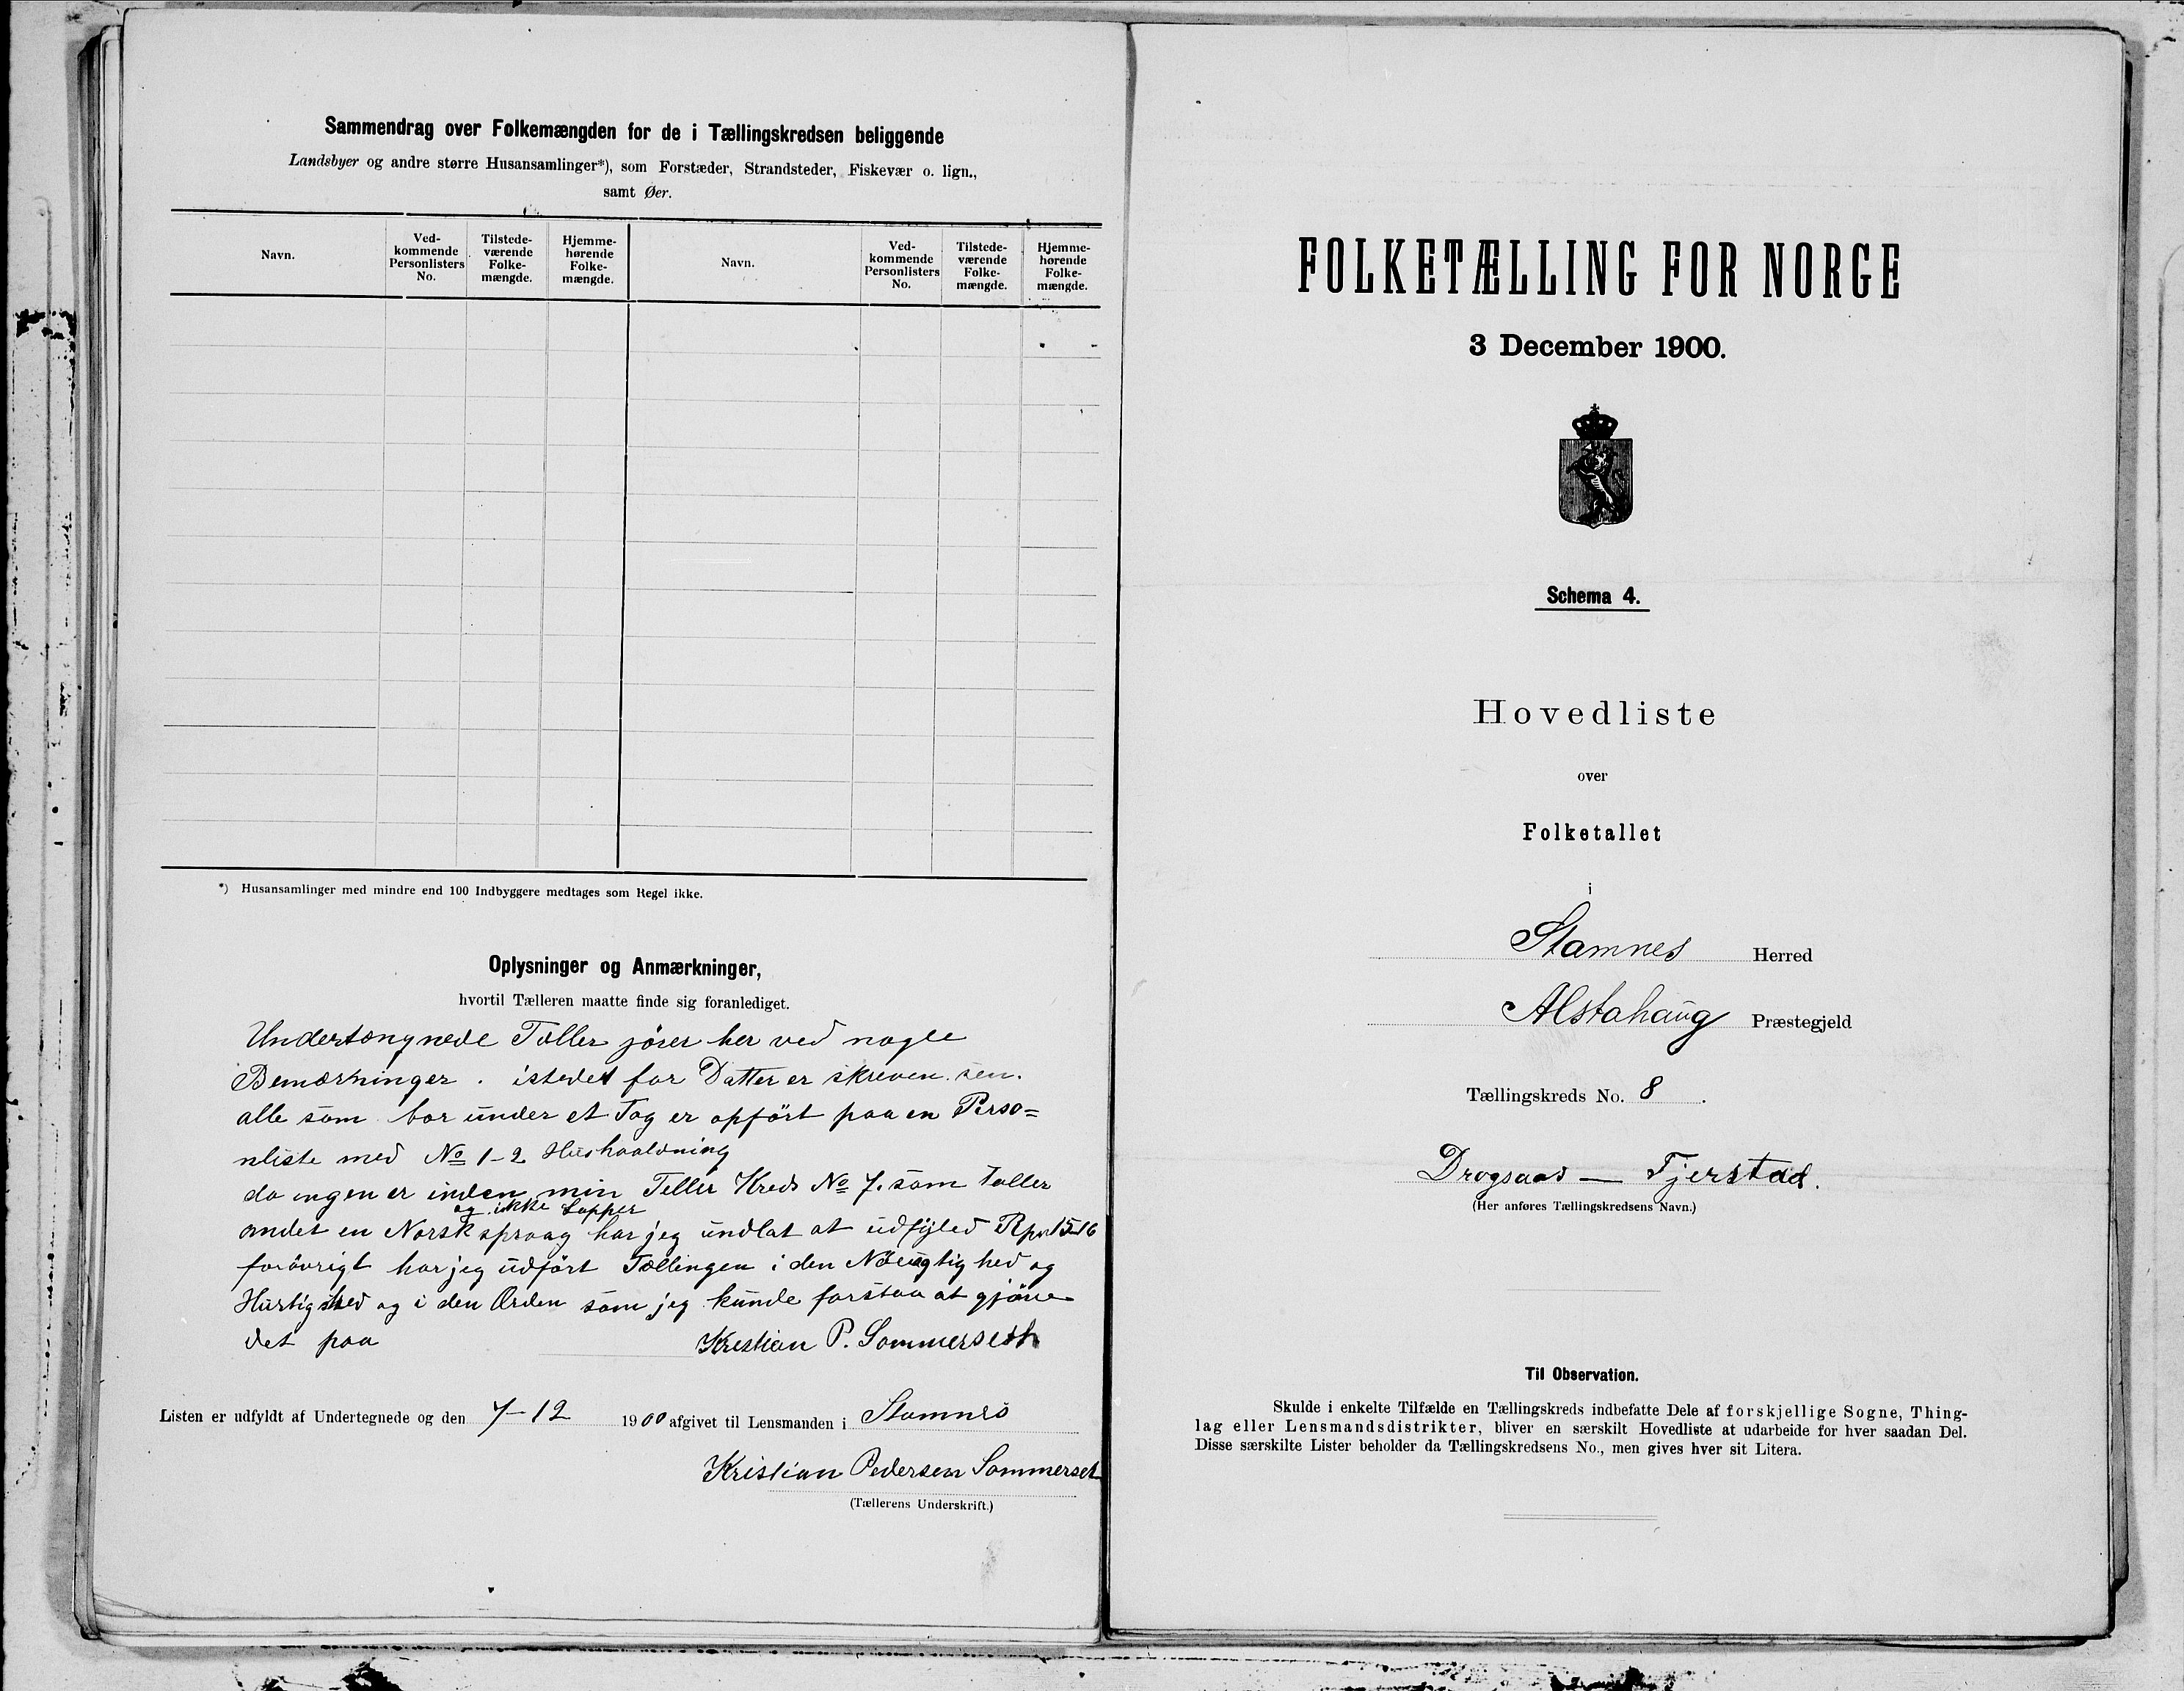 Sammendrag over Folkemængden for de i Tællingskredsen beliggende
Landsbyer og andre større Husansamlinger*), som Forstæder, Strandsteder, Fiskevær o. lign.,
samt Øer.
Navn.
Ved-
kommende
Personlisters
No.
Tilstede-
værende
Folke-
mængde.
Hjemme-
hørende
Folke-
mængde.
Navn.
Ved-
kommende
Personlisters
No.
Tilstede-
værende
Folke-
mængde.
Hjemme-
hørende
Folke-
mængde.
*) Husansamlinger med mindre end 100 Indbyggere medtages som Regel ikke.
Oplysninger og Anmærkninger,
hvortil Tælleren maatte finde sig foranlediget.
Undertengnede Tæller jører her ved nogle
Bemærkninger. istedet for Datter er skreven sen.
alle som bor under et Tag er opført paa en Perso=
nliste med No 1-2 Hushaaldning
da ingen er inden min Teller Kreds No 7. som taller
og ikke Lapper
andet en Norsk spraag har jeg undlat at udfyled 15-16
forøvrigt har jeg udført Tællingen i den Nøiugtighed og
Hurtighed og i den Orden som jeg kunde forstaa at gjøre
det paa Kristian P. Sommerseth
Listen er udfyldt af Undertegnede og den 7-12 1900 afgivet til Lensmanden i Stamnes
Kristian Pedersen Sommerset
(Tællerens Underskrift.)
FOLKETÆLLING FOR NORGE
3 December 1900.
Schema 4.
Hovedliste
over
Folketallet
i
Stamnes Herred
Alstahaug Præstegjeld
Tællingskreds No. 8.
Drogsaas — Tjerstad.
(Her anføres Tællingskredsens Navn.)
Til Observation.
Skulde i enkelte Tilfælde en Tællingskreds indbefatte Dele af forskjellige Sogne, Thing-
lag eller Lensmandsdistrikter, bliver en særskilt Hovedliste at udarbeide for hver saadan Del.
Disse særskilte Lister beholder da Tællingskredsens No., men gives hver sit Litera.